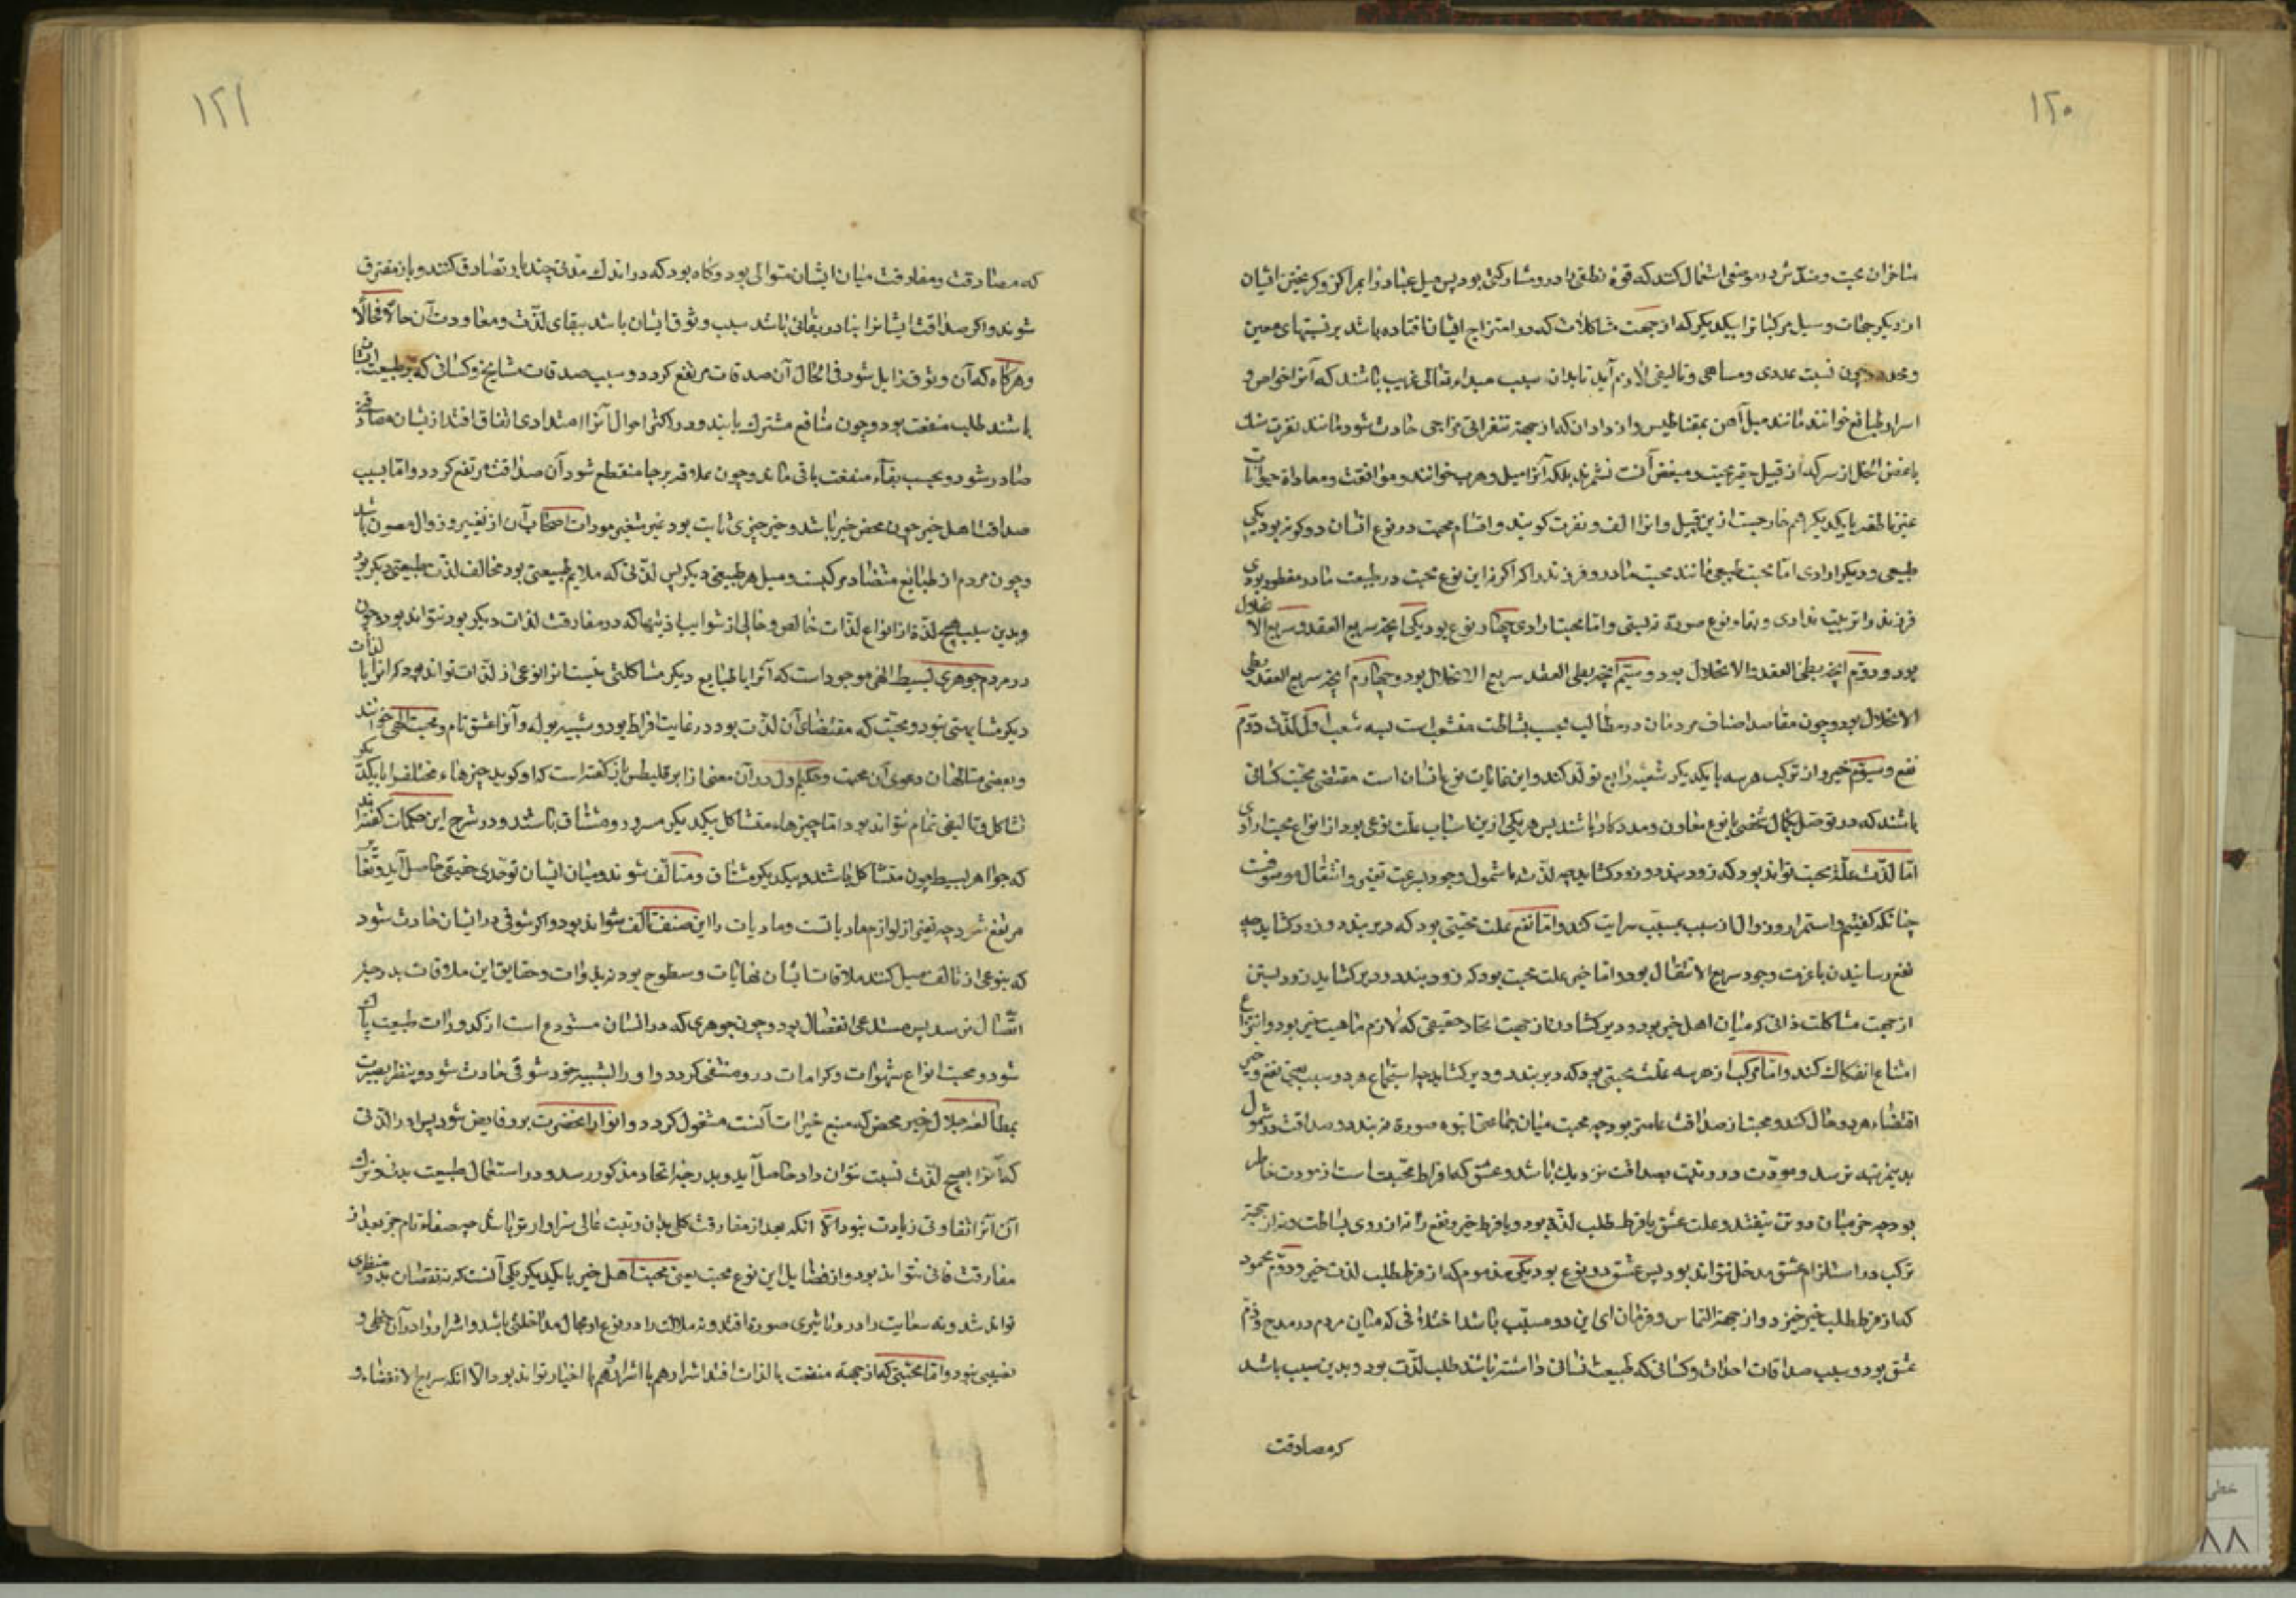 ۱۲۰
متاخران محبت و ضدش در موضعی استعمال کنند که قوة نطقی را درو مشارکتی بود پس میل عناصر را بمراکز و گریختن ایشان
از دیگر جهات و میل مرکبات را بیکدیگر که از جهت مشاکلات که در امتزاج ایشان افتاده باشد بر نسبتهای معین
و محدود چون نسبت عددی و مساحی و تالیفی لازم آید تا بدان سبب مبداء افعالی غریب باشند که آنرا خواص و
اسرار طبایع خوانند مانند میل آهن بمقناطیس و اضداد آن که از جهة تنفراتی مزاجی حادث شود مانند نفرت سنک
باغض الخل از سرکه از قبیل محبت و مبغضت نشمرند بلکه آنرا میل و هرب خوانند و موافقت و معادات حیوانات
غیر ناطقه با یکدیگر هم خارجست ازین قبیل و آنرا الف و نفرت کویند و اقسام محبت در نوع انسان دو کونه بود یکی
طبیعی و دیگر ارادی اما محبت طبیعی مانند محبت مادر و فرزند را که اگر نه این نوع محبت در طبیعت مادر مفطور بودی
فرزند را تربیت ندادی و بقاء نوع صورة نبستی و اما محبت ارادی چهار نوع بود یکی آنچه سریع العقد و سریع الانحلال
بود و دوم آنچه بطئ العقد و الانحلال بود و سیم آنچه بطی العقد سریع الانحلال بود و چهارم آنچه سریع العقد بطی
الانحلال بود و چون مقاصد اصناف مردمان در مطالب بحسب بساطت منشعب است بسه شعب اول لذت دوم
نفع و سیوم خیر و از ترکب هر سه با یکدیگر شعبهٔ رابع تولد کند و این غایات نوع انسان است مقتضی محبت کسانی
باشند که در توصل بکمال شخصی یا نوع معاون و مددکار باشند پس هر یکی ازین اسباب علت نوعی بود از انواع محبت ارادی
اما لذت علة محبتی تواند بود که زود بندد و زود کشاید چه لذت با شمول وجود بسرعت تغیر و انتقال موصوفست
چنانکه کفتیم و استمرار و زوال از سبب بمسبب سرایت کند و اما نفع علت محبتی بود که دیر بندد و زود کشاید چه
نفع رسانیدن با عزت وجود سریع الانتقال بود و اما خیر علت محبتی بود که زود بندد و دیر کشاید زود بستن
از جهت مشاکلت ذاتی که میان اهل خیر بود و دیر کشادن از جهت اتحاد حقیقی که لازم ماهیت خیر بود و
امتناع انفکاک کند و اما مرکب از هر سه علت محبتی بود که دیر بندد و دیر کشاید چه استجماع هر دو سبب یعنی نفع و خیر
اقتضاء هر دو حال کند و محبت از صداقت عامتر بود چه محبت میان جماعتی انبوه صورة بندد و صداقت در شمول
بدین مرتبه نرسد و مودت در رتبت بصداقت نزدیک باشد و عشق که افراط محبت است از مودت خاص‌تر
بود چه جز میان دو تن نیفتد و علت عشق یا فرط طلب لذة بود و یا فرط طلب خیر و نفع را نه از روی بساطت و نه از جهة
ترکب در استلزام عشق مدخل نتواند بود پس عشق دو نوع بود یکی مذموم که از فرط طلب لذت خیزد و دوم محمود
که از فرط طلب خیر خیزد و از جهة التباس و فرقان ای این دو سبب باشد اختلافی که میان مردم در مدح و ذم
عشق بود و سبب صداقات احداث و کسانی که طبیعت نسانی داشته باشند طلب لذت بود و بدین سبب باشد
که مصادقت
۱۲۱
که مصادقت و مفارقت میان ایشان متوالی بود و کاه بود که در اندک مدتی چند بار تصادق کنند و باز مفترق
شوند و اکر صداقت ایشانرا بنادر بقائی باشد سبب وثوق ایشان باشد ببقای لذت و معاودت آن حالا فحالا
و هر کاه که آن وثوق زایل شود فی الحال آن صداقت مرتفع کردد و سبب صداقات مشایخ و کسانی که بر طبیعت ایشان
باشند طلب منفعت بود و چون منافع مشترک یابند و در اکثر احوال آنرا امتدادی اتفاق افتد از ایشان مصادقتی
صادر شود و بحسب بقاء منفعت باقی ماند و چون علاقه رجا منقطع شود آن صداقت مرتفع کردد و اما سبب
صداقت اهل خیر چون محض خیر باشد و خیر چیزی ثابت بود غیر متغیر مودات اصحاب آن از تغییر و زوال مصون باشد
و چون مردم از طبایع متضاد مرکبست و میل هر طبیعتی دیگر پس لذتی که ملایم طبیعتی بود مخالف لذت طبیعتی دیگر بود
و بدین سبب هیچ لذة از انواع لذات خالص و خالی از شوایب اذیتها که در مفارقت لذات دیگر بود نتواند بود و چون
در مردم جوهری بسیط الهی موجود است که آنرا با طبایع دیگر مشاکلتی نیست آنرا نوعی از لذات تواند بود که آنرا با لذات
دیگر مشابهتی نبود و محبت که مقتضای آن لذت بود در غایت افراط بود و شبیه بوله و آنرا عشق تام و محبت الهی خوانند
و بعضی متالهان دعوی آن محبت و حکیم اول در آن معنی از ابرقلیطس باز کفته است که او کوید چیزهاء مختلف را با یکدیگر
تشاکل و تالیفی تمام نتواند بود اما چیزهاء متشاکل بیکدیگر مسرور و مشتاق باشند و در شرح این کلمات کفته‌اند
که جواهر بسیط چون متشاکل باشند و بیکدیگر مشتاق و متالف شوند و میان ایشان توحدی حقیقی حاصل آید و تغایر
مرتفع شود چه تغیر از لوازم مادیاتست و مادیات را این صنف تالف نتواند بود و اکر شوقی در ایشان حادث شود
که بنوعی از تالف میل کنند ملاقات ایشان بنهایات و سطوح بود نه بذوات و حقایق و این ملاقات بدرجهٔ
اتصال نرسد پس مستدعی انفصال بود و چون جوهری که در انسان مستودع است از کدورات طبیعت پاک
شود و محبت انواع شهوات و کرامات درو منتفی کردد و او را بشبیه خود شوقی حادث شود و بنظر بصیرت
بمطالعهٔ جلال خیر محض که منبع خیرات آنست مشغول کردد و انوار آنحضرت برو فایض شود پس او را لذتی
که آنرا بهیچ لذت نسبت نتوان داد حاصل آید و بدرجهٔ اتحاد مذکور رسد و در استعمال طبیعت بدنی و ترک
آن آنرا تفاوتی زیادت نبود الا آنکه بعد از مفارقت کلی بدان رتبت عالی سزاوارتر باشد چه صفاء تام جز بعد از
مفارقت فانی نتواند بود و از فضایل این نوع محبت یعنی محبت اهل خیر با یکدیگر یکی آنست که نه نقصان بدو متطرق
تواند شد و نه سعایت را درو تاثیری صورة افتد و نه ملالت را در نوع او مجال مداخلتی باشد و اشرار را در آن حظی و
نصیبی نبود و اما محبتی که از جهة منفعت یا لذات افتد اشرار را هم با اشرار و هم با اخیار تواند بود الا آنکه سریع الانقضاء و
خطی
۸۸